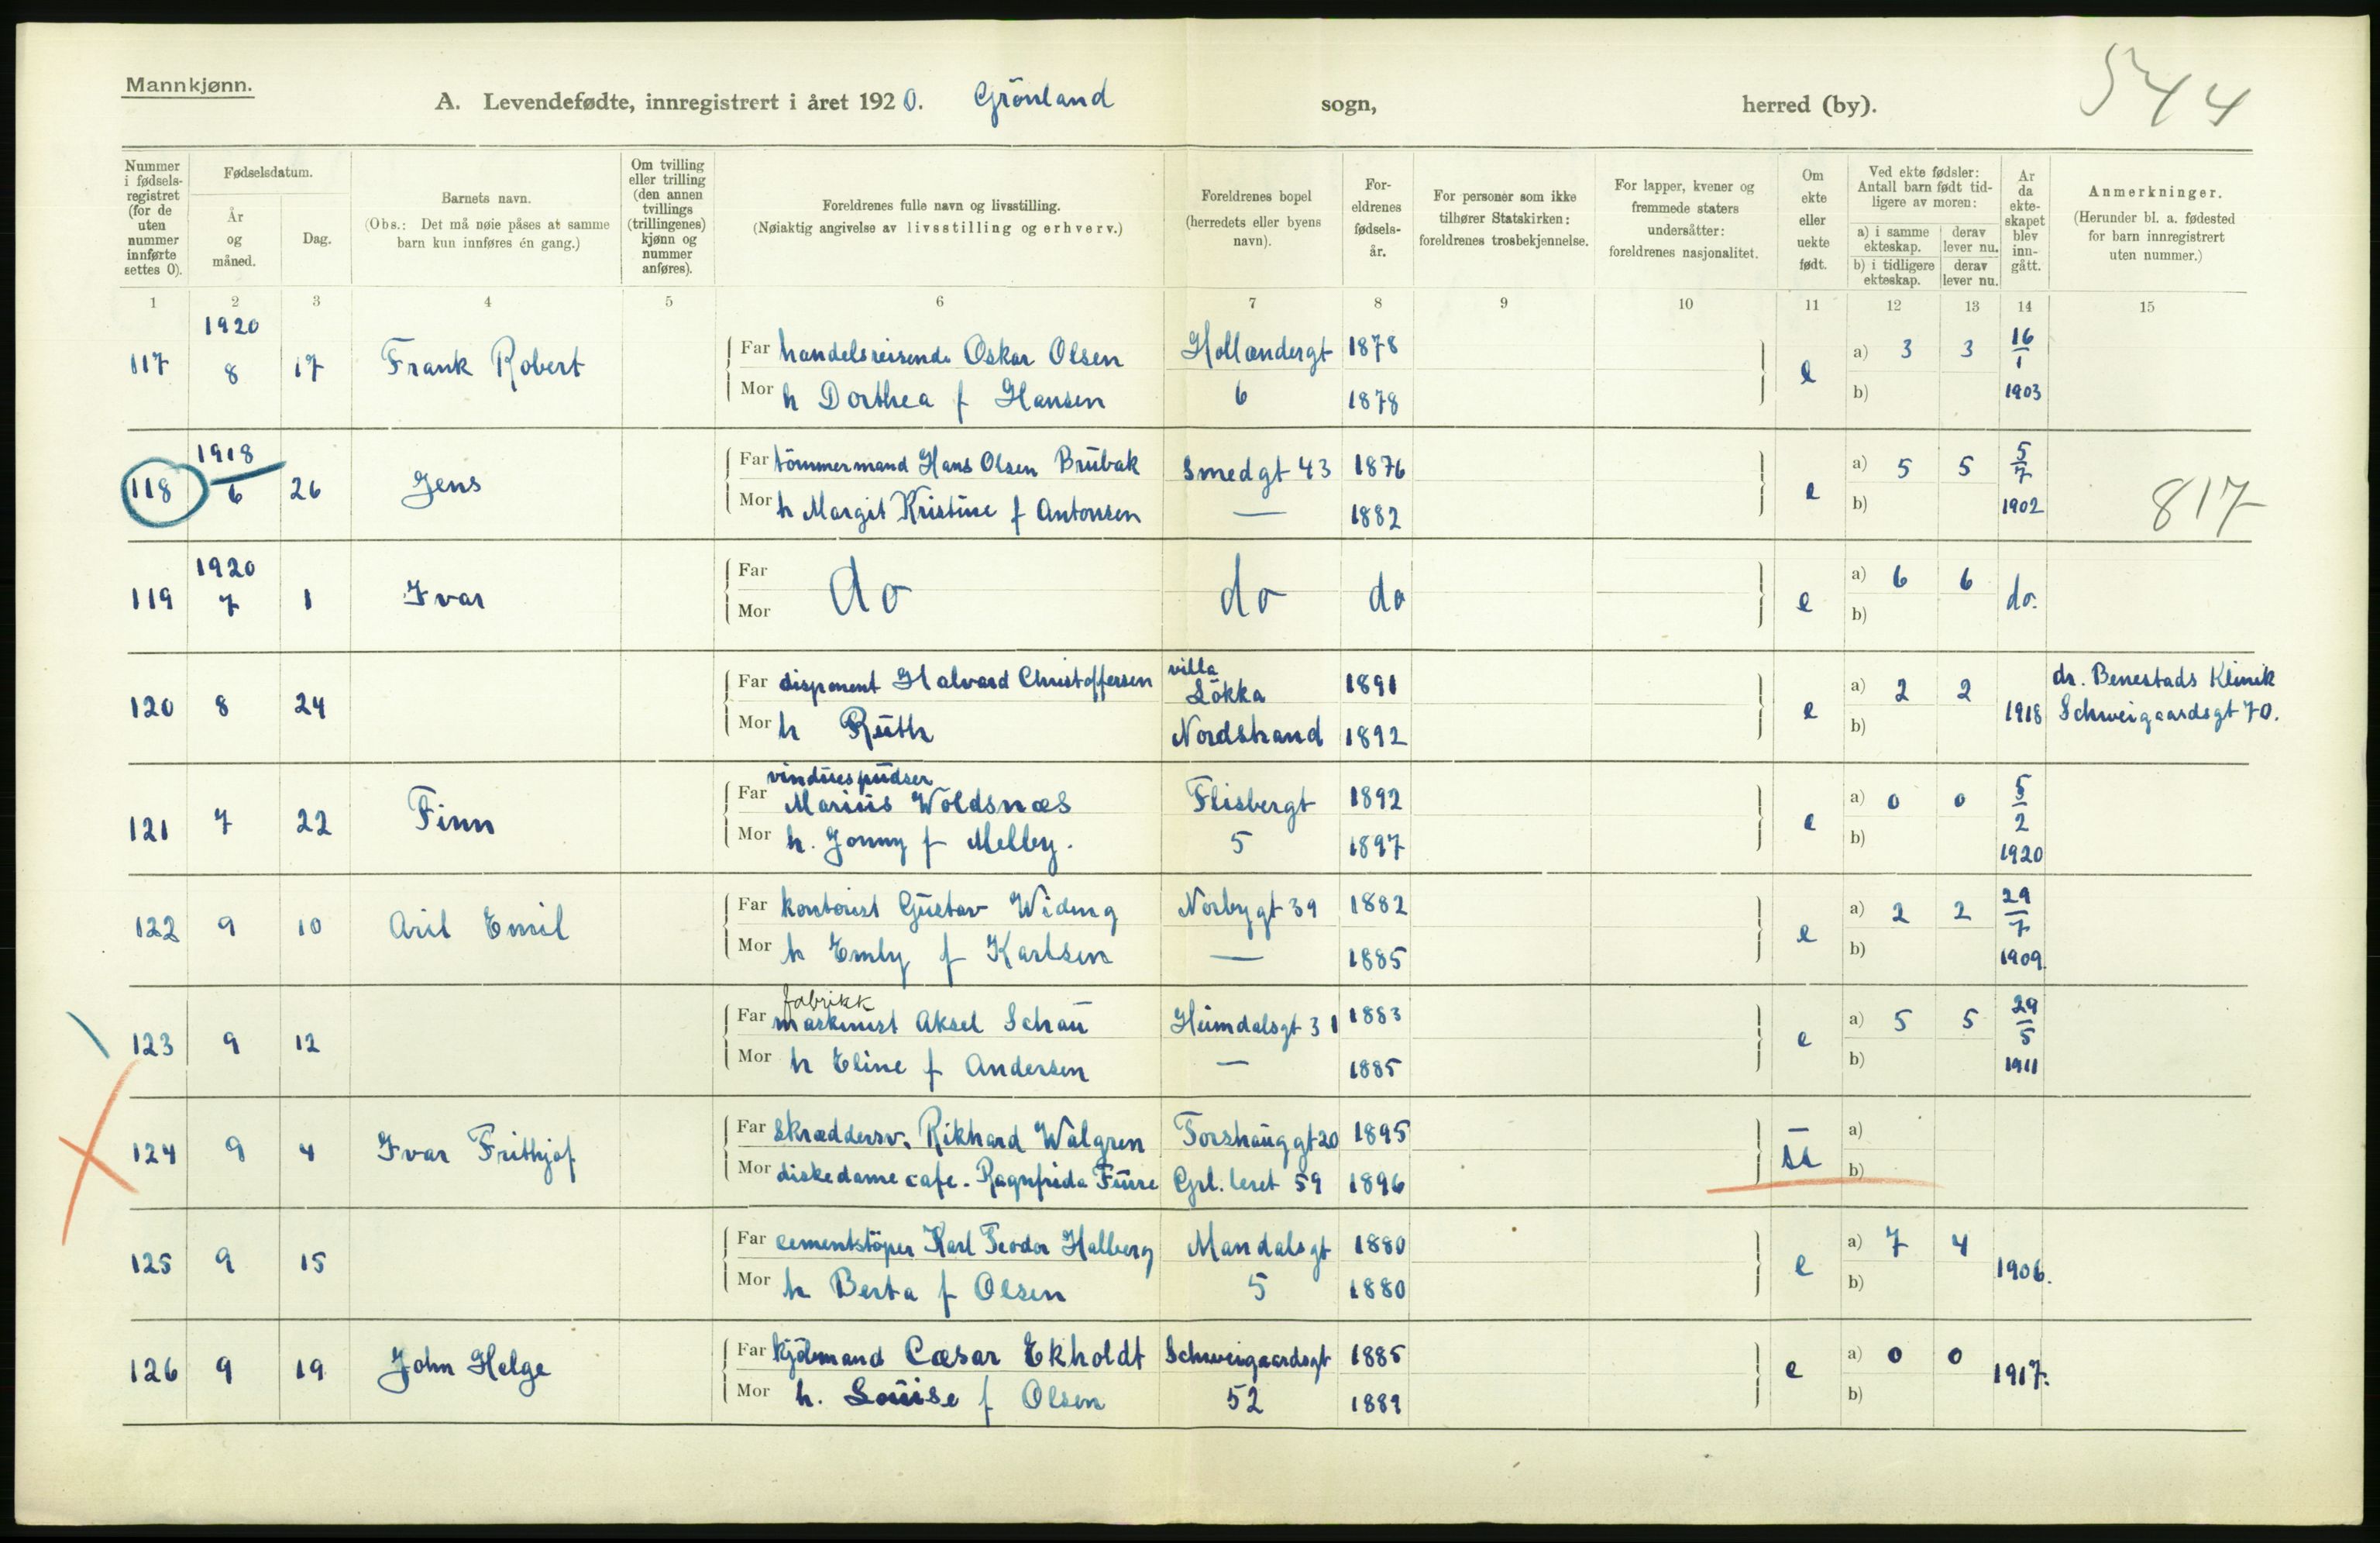 Mannkjønn.
A. Levendefødte, innregistrert i året 1920. Grönland sogn, herred (by). 544
Nummer i fødsels-registret (for de uten nummer innførte settes 0).
Fødselsdatum.
År og måned.
Dag.
Barnets navn.
(Obs.: Det må nøie påses at samme barn kun innføres én gang.)
Om tvilling eller trilling (den annen tvillings (trillingenes) kjønn og nummer anføres).
Foreldrenes fulle navn og livsstilling.
(Nøiaktig angivelse av livsstilling og erhverv.)
Foreldrenes bopel (herredets eller byens navn).
For-eldrenes fødsels-år.
For personer som ikke tilhører Statskirken: foreldrenes trosbekjennelse.
For lapper, kvener og fremmede staters undersåtter: foreldrenes nasjonalitet.
Om ekte eller uekte født.
Ved ekte fødsler: Antall barn født tid-ligere av moren:
a) i samme ekteskap. derav lever nu.
b) i tidligere ekteskap. derav lever nu.
År da ekte-skapet blev inn-gått.
Anmerkninger.
(Herunder bl. a. fødested for barn innregistrert uten nummer.)
1 2 3 4 5 6 7 8 9 10 11 12 13 14 15
1920
117 8 17 Frank Robert Far handelsreisende Oskar Olsen Hollændergt 1878 e a) 3 3 16/1
Mor h Dorthea f Hansen 6 1878 b) 1903
1918
118 6 26 Jens Far tömmermand Hans Olsen Brubak Smedgt 43 1876 e a) 5 5 5/7
Mor h Margit Kristine f Antonsen — 1882 b) 1902 817
1920
119 7 1 Ivar Far do do do e a) 6 6 do.
Mor b)
120 8 24 Far disponent Halvard Christoffersen villa Lökka 1891 e a) 2 2 1918 dr. Benestads Klinik
Mor h Ruth Nordstrand 1892 b) Schweigaardsgt 70.
vinduespudser
121 7 22 Finn Far Marius Woldsnæs Flisbergt 1892 e a) 0 0 5/2
Mor h. Jonny f Melby. 5 1897 b) 1920
122 9 10 Aril Emil Far kontorist Gustav Widing Norbygt 39 1882 e a) 2 2 29/7
Mor h Emly f Karlsen — 1885 b) 1909.
fabrikk
123 9 12 Far maskinist Aksel Schau Heimdalsgt 31 1883 e a) 5 5 29/5
Mor h Eline f Andersen — 1885 b) 1911
124 9 4 Ivar Frithjof Far Skræddersv. Rikhard Walgren Torshauggt 20 1895 a)
Mor diskedame cafe. Ragnfrida Furre Grl. leret 59 1896 b)
125 9 15 Far cementstöper Karl Teodor Halberg Mandalsgt 1880 e a) 7 4 1906.
Mor h Berta f Olsen 5 1880 b)
126 9 19 John Helge Far kjölmand Cæsar Ekholdt Schweigaardsgt 1885 e a) 0 0 1917.
Mor h. Louise f Olsen 52 1889 b)